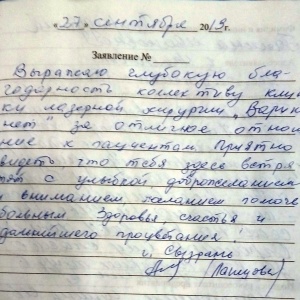 «27» сентября 2019г.
Заявление №
Выражаю глубокую бла-
годарность колективу клини
ки лазерной хирургии „Варик
нет" за отличное отно
ние к пациентам. Приятно
видеть что тебя здесь встре
ют с улыбкой доброжелательн
и вниманием желанием помоч
больным Здоровья счастья и
дальнейшего процветания!
г. Сызрань